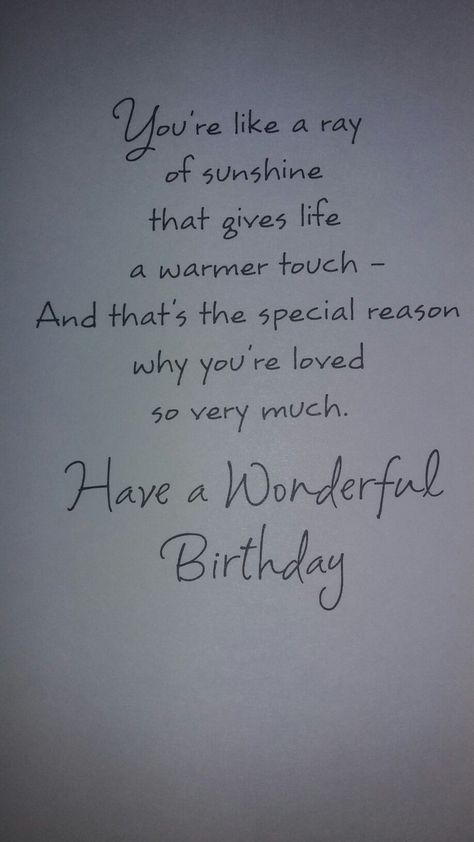 You're like a ray
of sunshine
that gives life
a warmer touch –
And that's the special reason
why you're loved
so very much.
Have a Wonderful
Birthday